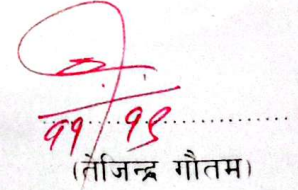 ११/१९
(तेजिन्द्र गौतम)